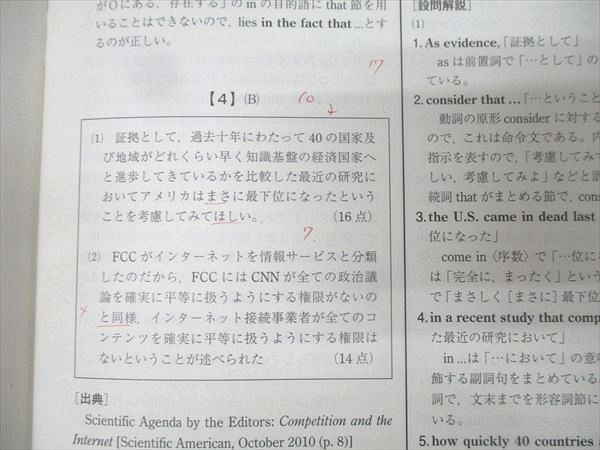 がOにある，存在する」の in の目的語に that 節を用
いることはできないので，lies in the fact that ...とす
るのが正しい。
17
【4】(B)
10.
(1) 証拠として，過去十年にわたって 40 の国家及
び地域がどれくらい早く知識基盤の経済国家へ
と進歩してきているかを比較した最近の研究に
おいてアメリカはまさに最下位になったという
ことを考慮してみてほしい。 (16 点)
7.
(2) FCC がインターネットを情報サービスと分類
したのだから，FCC には CNN が全ての政治議
論を確実に平等に扱うようにする権限がないの
と同様，インターネット接続事業者が全てのコ
ンテンツを確実に平等に扱うようにする権限は
ないということが述べられた (14 点)
[出典]
Scientific Agenda by the Editors: Competition and the
Internet [Scientific American, October 2010 (p. 8)]
[設問解説]
(1)
1. As evidence,「証拠として」
as は前置詞で「…として」の
ている。
2. consider that ...「…というこ
動詞の原形 consider に対する
ので，これは命令文である。
指示を表すので，「考慮してみて
しい，考慮してみよ」などと
続詞 that がまとめる節で，cons
3. the U.S. came in dead last
位になった」
come in〈序数〉で「…位に
は「完全に，まったく」という
で「まさしく［まさに］最下位
4. in a recent study that comp
た最近の研究において」
in ...は「…において」の意
飾する副詞句をまとめている。
詞で，文末までを形容詞節に
いる。
5. how quickly 40 countries a